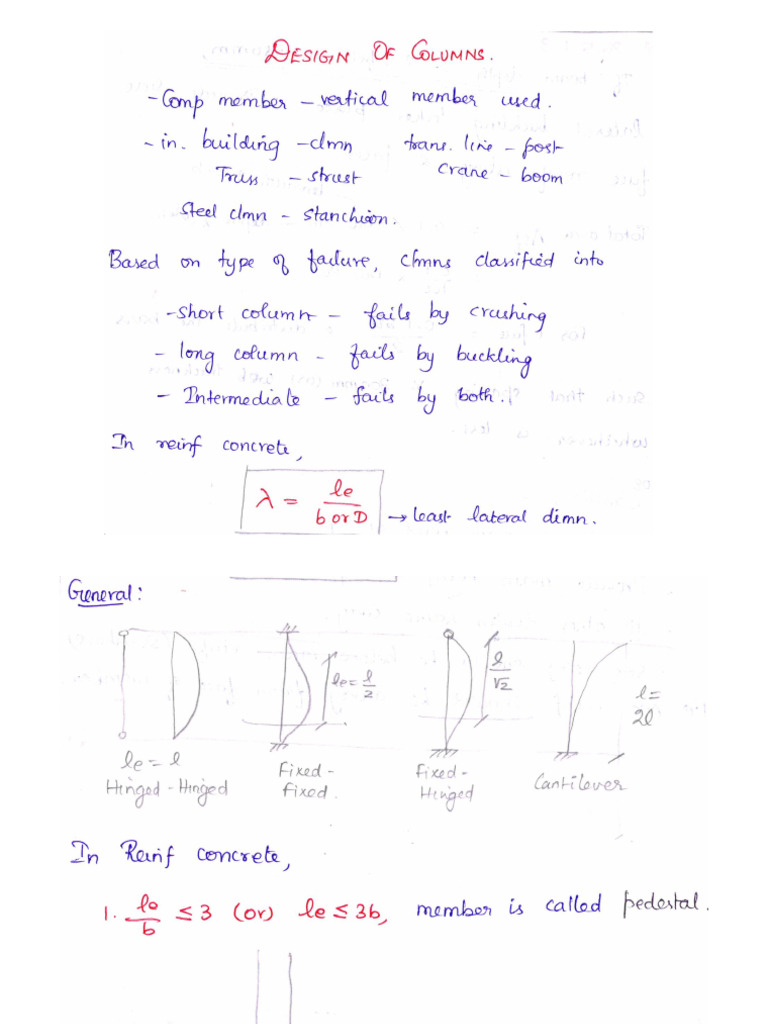 DESIGN OF COLUMNS.
- Comp member - vertical member used.
- in. building - clmn trans. line - post
Truss - strust crane - boom
Steel clmn - stanchion.
Based on type of failure, clmns classified into
- short column - fails by crushing
- long column - fails by buckling
- Intermediate - fails by both.
In reinf concrete,
λ = le / b or D → least lateral dimn.
General:
le = l/2
l/√2
l = 2l
le = l
Hinged - Hinged
Fixed - Fixed.
Fixed - Hinged
Cantilever
In Reinf concrete,
1. le/b ≤ 3 (or) le ≤ 3b, member is called pedestal.